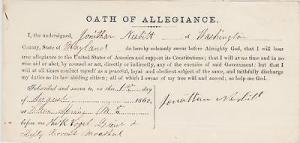 OATH OF ALLEGIANCE.
I, the undersigned, Jonathan Nesbitt of Washington
County, State of Maryland do hereby solemnly swear before Almighty God, that I will bear
true allegiance to the United States of America and support its Constitution; that I will at no time and in no
wise aid or abet, by word or act, directly or indirectly, any of the enemies of said Government; but that I
will at all times conduct myself as a peaceful, loyal and obedient subject of the same, and faithfully discharge
my duties as its law abiding citizen; all of which I swear of my own free will and accord; so help me God.
Subscribed and sworn to, on this day
of August 1862,
at Spring
before me
Jonathan Nesbitt